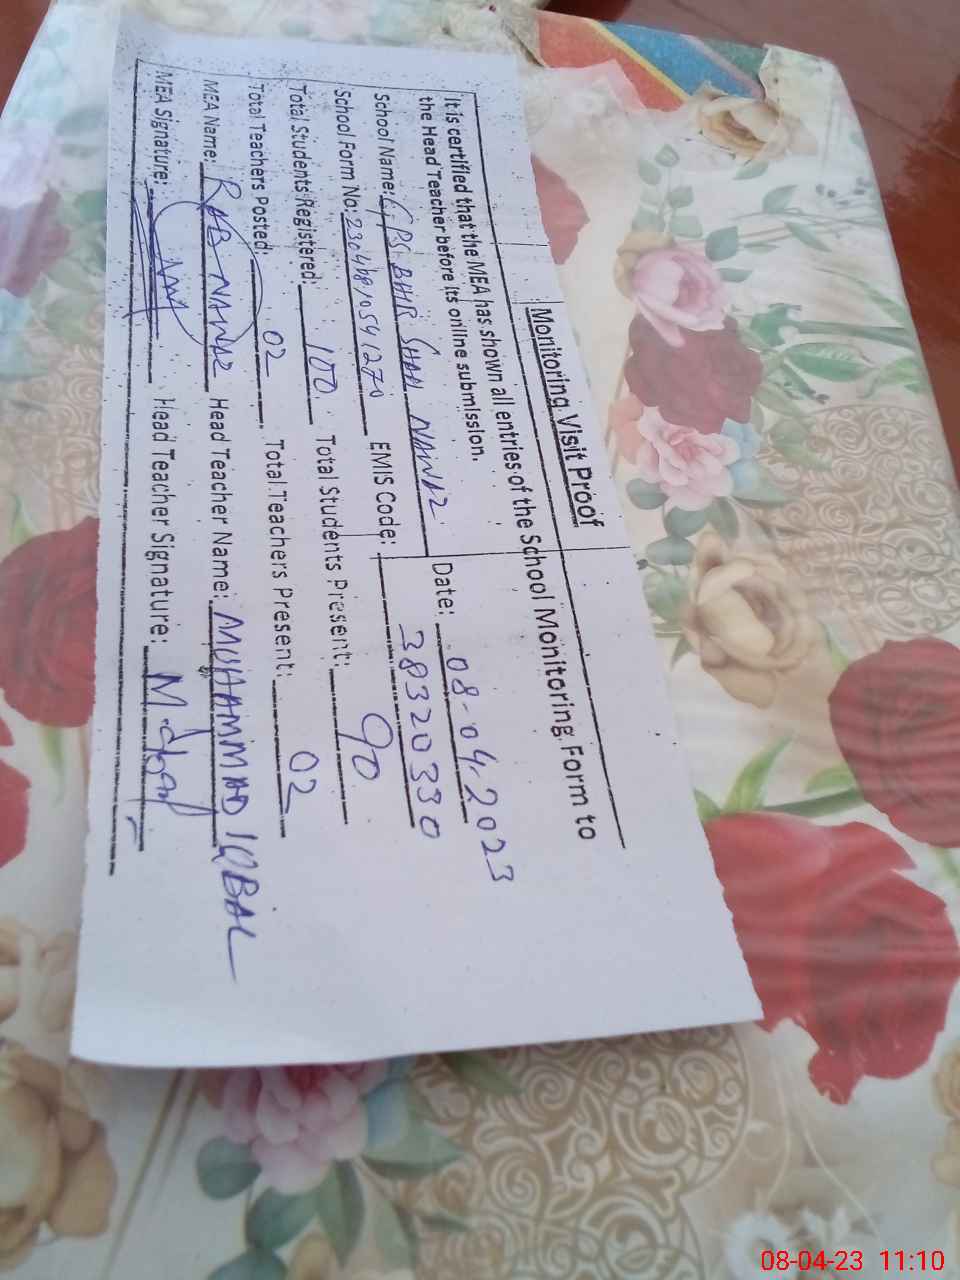 Monitoring Visit Proof
It is certified that the MEA has shown all entries of the School Monitoring Form to
the Head Teacher before its online submission.
School Name: GPS BAHR SHAH NAWAZ Date: 08-04-2023
School Form No: 2304810541270 EMIS Code: 38320330
Total Students Registered: 100 Total Students Present: 90
Total Teachers Posted: 02 Total Teachers Present: 02
MEA Name: RAB NAWAZ Head Teacher Name: MUHAMMAD IQBAL
MEA Signature: Head Teacher Signature: M. Iqbal
08-04-23 11:10